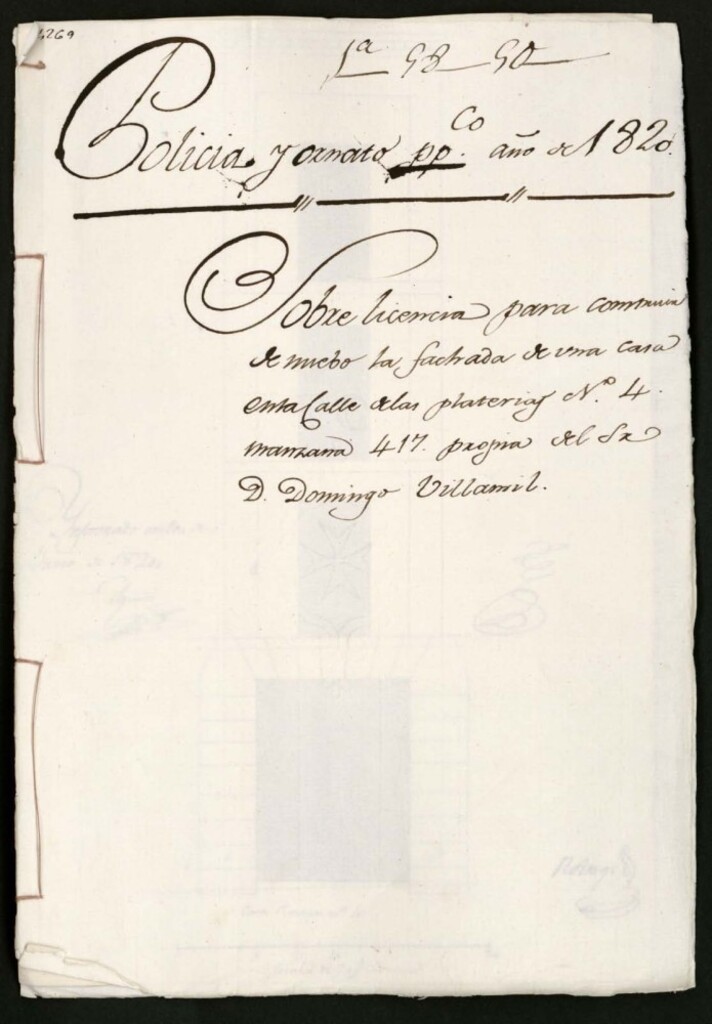 1269
1ª 58 50
Policia y ornato pp.co año de 1820.
Sobre licencia para construir
de nuebo la fachada de una casa
en la Calle de las platerias N.º 4
manzana 417. propia del Sr
D. Domingo Villamil.